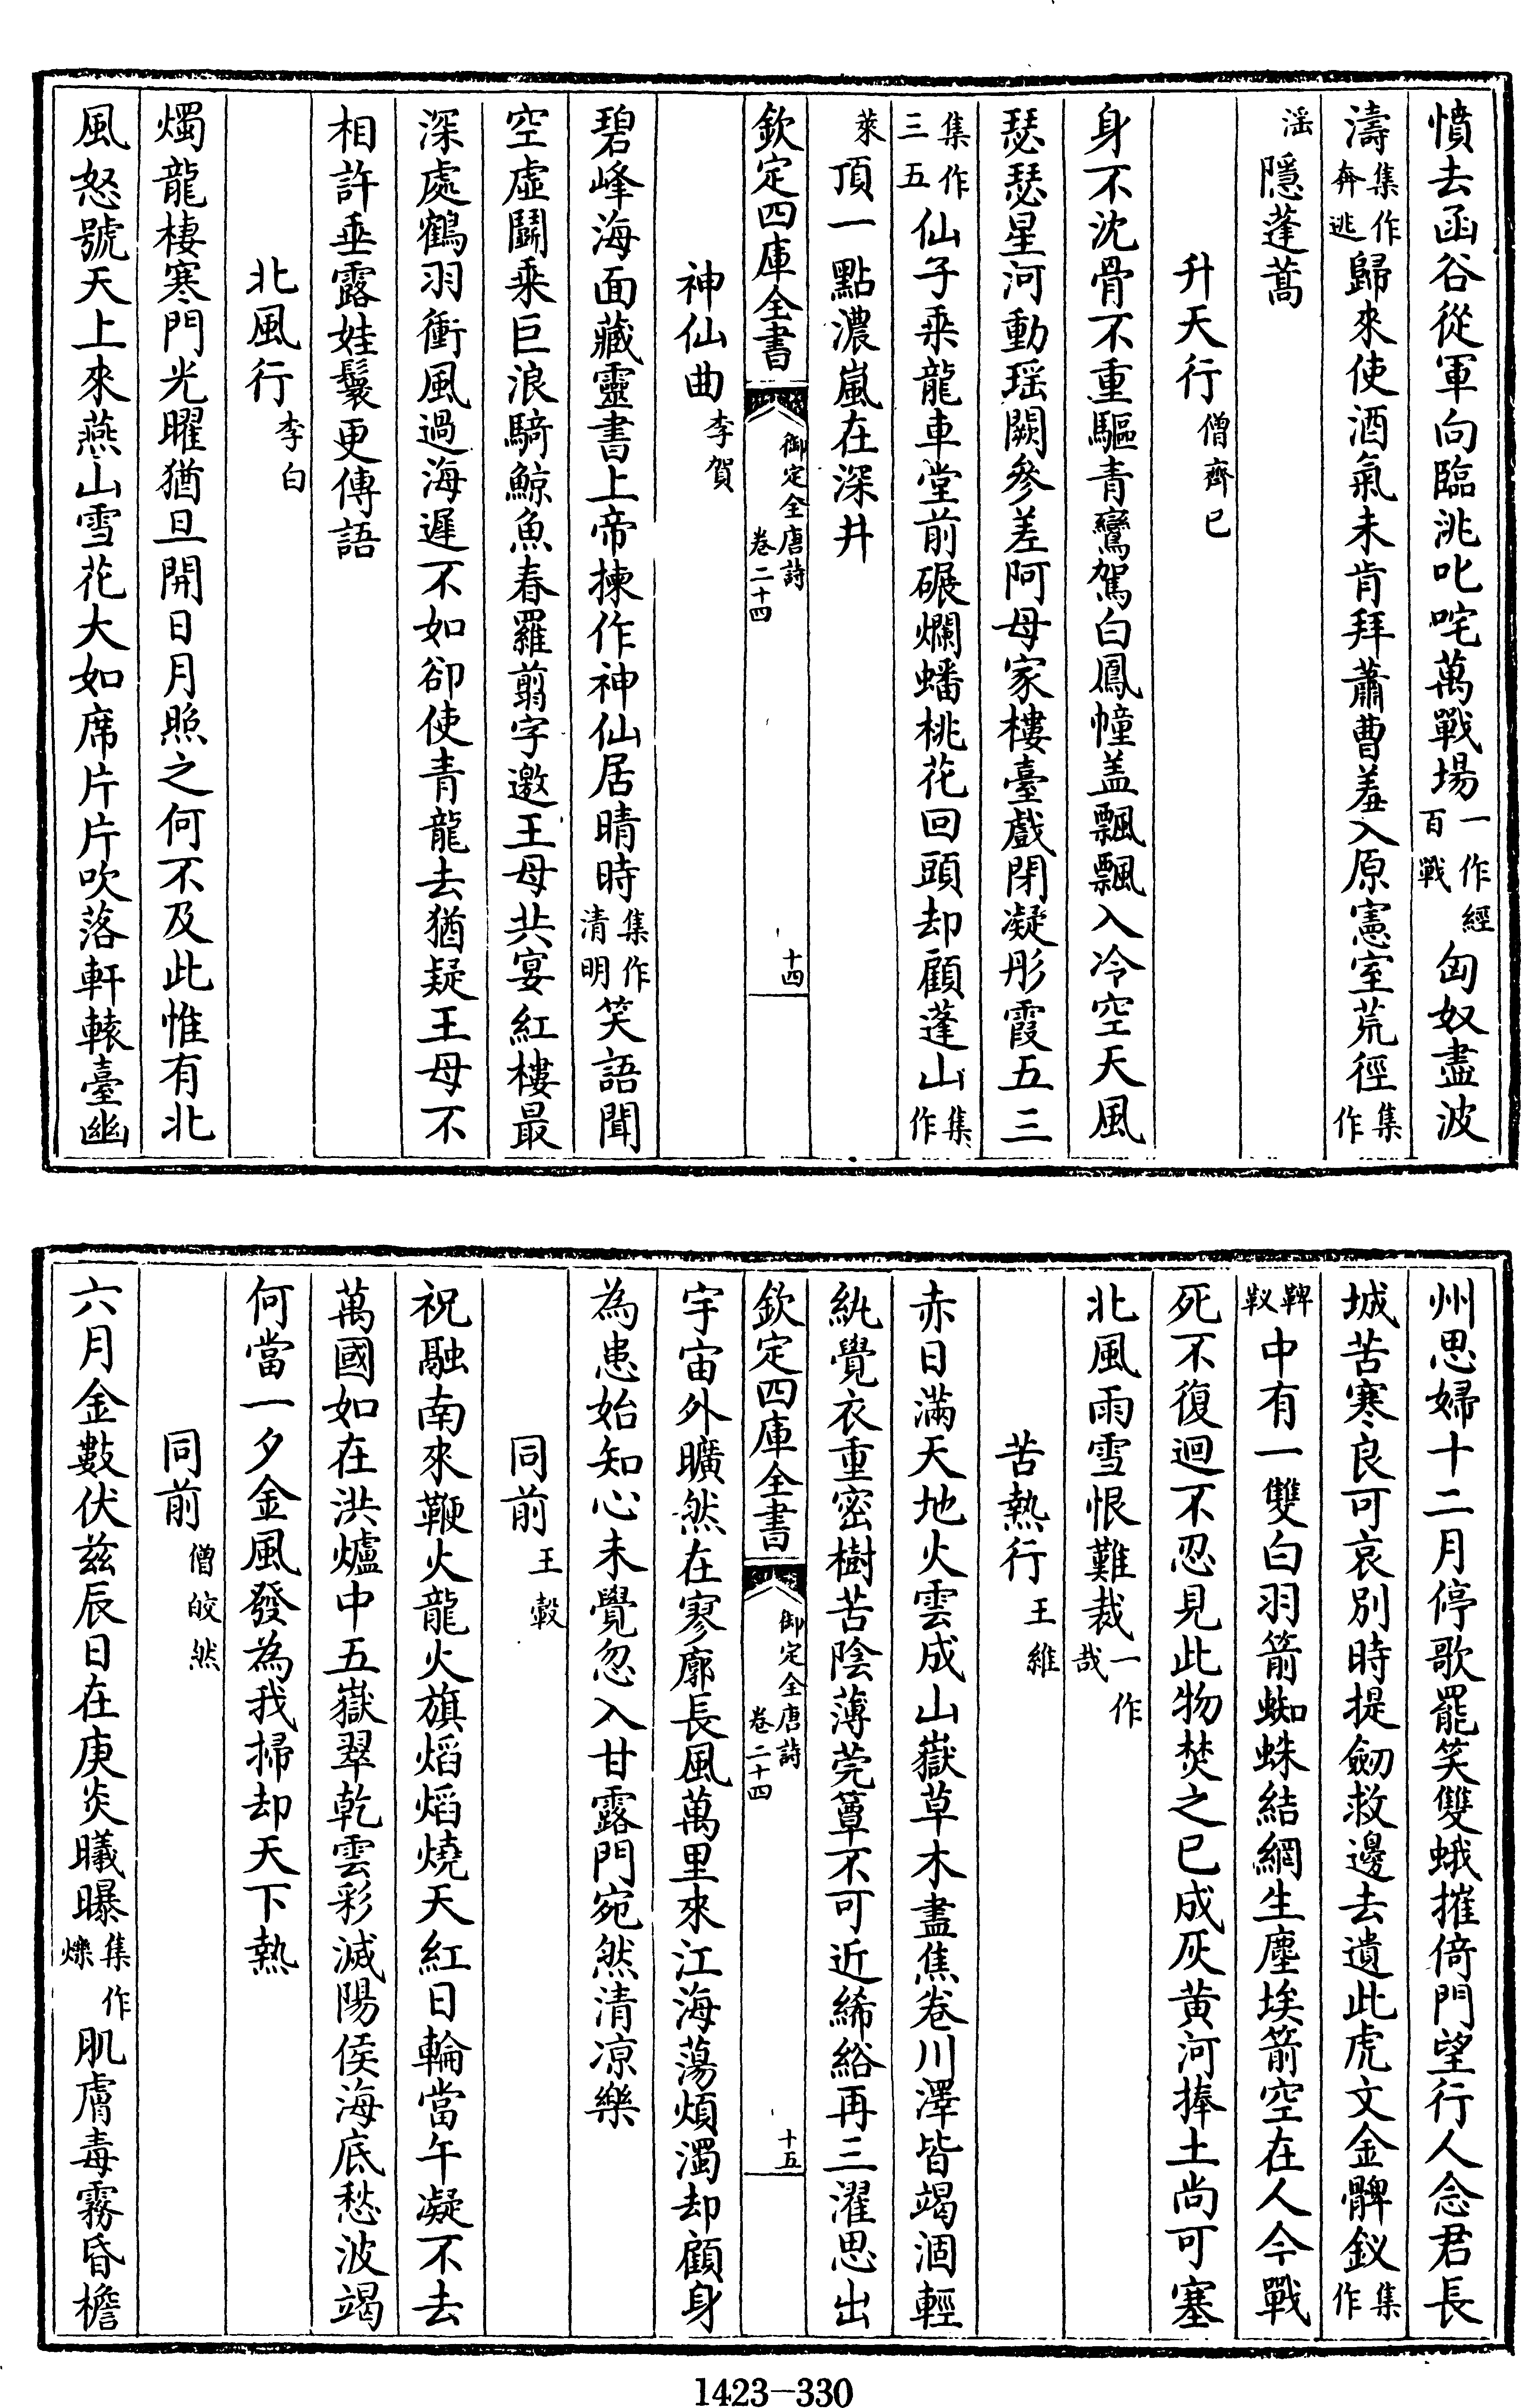 憤去函谷從軍向臨洮叱咤萬戰場一作經百戰匈奴盡波
濤集作奔逃歸來使酒氣未肯拜蕭曹羞入原憲室荒徑集作
滛隱蓬蒿
升天行僧齊已
身不沈骨不重驅青鸞駕白鳳幢盖飄飄入冷空天風
瑟瑟星河動瑶闕參差阿母家樓臺戲閉凝彤霞五三
集作三五仙子乗龍車堂前碾爛蟠桃花回頭却顧蓬山集作
萊頂一點濃嵐在深井
欽定四庫全書 御定全唐詩卷二十四 十四
神仙曲李賀
碧峰海面藏靈書上帝揀作神仙居晴時集作清明笑語聞
空虛鬭乗巨浪騎鯨魚春羅翦字邀王母共宴紅樓最
深處鶴羽衝風過海遲不如卻使青龍去猶疑王母不
相許垂露娃鬟更傳語
北風行李白
燭龍棲寒門光曜猶旦開日月照之何不及此惟有北
風怒號天上來燕山雪花大如席片片吹落軒轅臺幽
州思婦十二月停歌罷笑雙蛾摧倚門望行人念君長
城苦寒良可哀別時提劒救邊去遺此虎文金鞞釵集作
鞞靫中有一雙白羽箭蜘蛛結網生塵埃箭空在人今戰
死不復迴不忍見此物焚之已成灰黄河捧土尚可塞
北風雨雪恨難裁一作哉
苦熱行王維
赤日滿天地火雲成山嶽草木盡焦卷川澤皆竭涸輕
紈覺衣重密樹苦陰薄莞簟不可近絺綌再三濯思出
欽定四庫全書 御定全唐詩卷二十四 十五
宇宙外曠然在寥廓長風萬里來江海蕩煩濁却顧身
為患始知心未覺忽入甘露門宛然清凉樂
同前王轂
祝融南來鞭火龍火旗熖熖燒天紅日輪當午凝不去
萬國如在洪爐中五嶽翠乾雲彩滅陽侯海底愁波竭
何當一夕金風發為我掃却天下熱
同前僧皎然
六月金數伏兹辰日在庚炎曦曝集作爍肌膚毒霧昏檐
1423—330